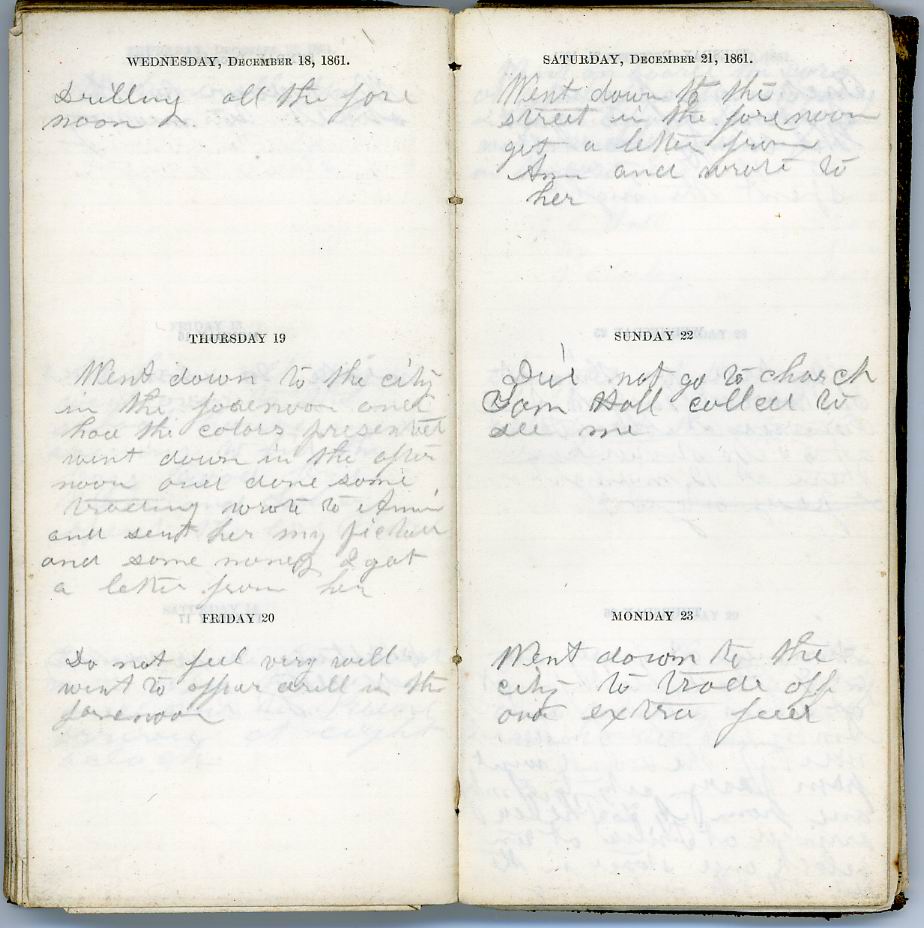 WEDNESDAY, DECEMBER 18, 1861.
Drilling all the fore
noon
THURSDAY 19
Went down to the city
in the forenoon and
had the colors presented
went down in the after
noon and done some
trading wrote to Ann
and sent her my picture
and some money I got
a letter from her
FRIDAY 20
Do not feel very well
went to offier drill in the
forenoon
SATURDAY, DECEMBER 21, 1861.
Went down to the
street in the forenoon
got a letter from
Ann and wrote to
her
SUNDAY 22
Did not go to church
Sam Hall called to
see me
MONDAY 23
Went down to the
city to trade off
our extra